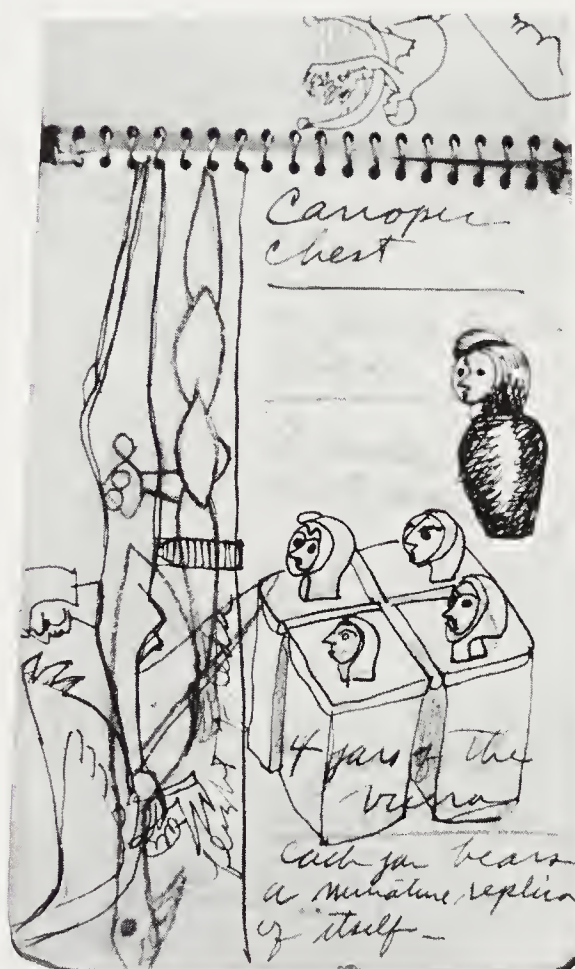 Canopic
chest
4 jars of the
each jar bears
a miniature replica
of itself –